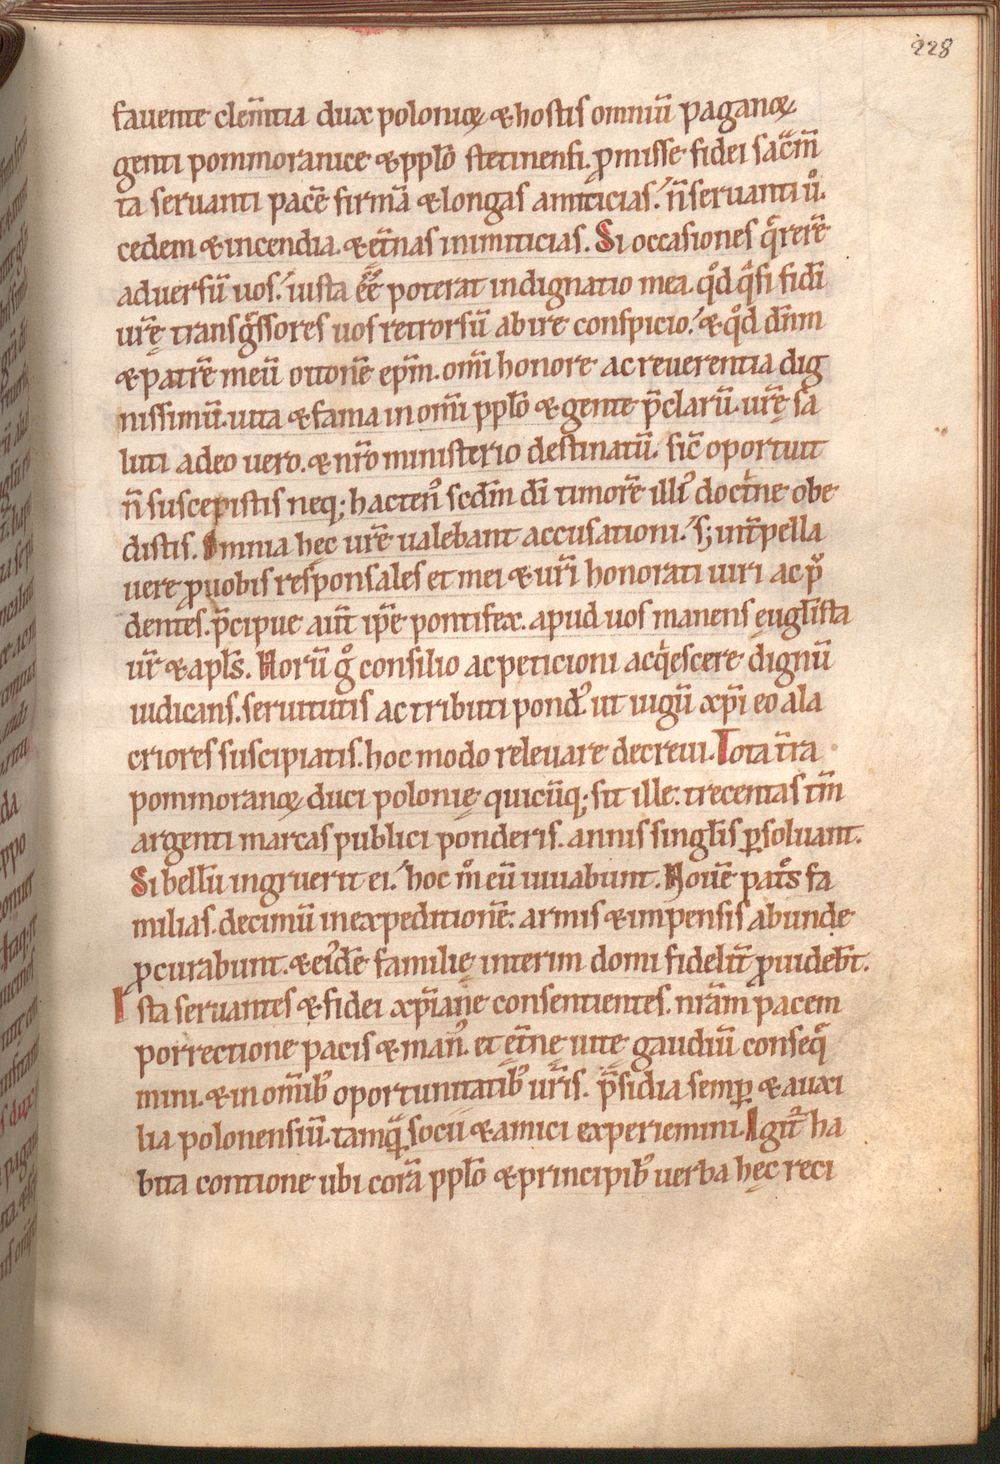 228
fauente clem̄tia dux poloniꝝ ⁊ hostis omniū paganoꝝ
genti pommoranice ⁊ pplo̅ stetinensi. ꝓmisse fidei sac̄m̄
ta seruanti pacē firmā ⁊ longas amiticias. n̄ seruanti uº.
cedem ⁊ incendia. ⁊ et̄nas inimiticias. Si occasiones q̄rerē
aduersū uos. iusta eē̄ poterat indignatio mea. qd̊ qͣsi fidei
ur̄ę transgͥssores uos retrorsū abire conspicio. ⁊ qd̊ dn̄m
⁊ patrē meū ottonē ep̄m. om̄i honore ac reuerentia dig
nissimū. uita ⁊ fama in om̄i pplo̅ ⁊ gente p̄clarū. ur̄ę sa
luti adeo uero. ⁊ nr̄o ministerio destinatū. sic̄ oportuit
n̄ suscepistis neq; hacten᷒ scdm̄ dī timorē illi᷒ doctͥne obe
distis. Omnia hec ur̄e ualebant accusationi. s; int̄pella
uere ꝓ uobis responsales et mei ⁊ ur̄i honorati uiri ac pͦ
dentes. p̄cipue aut̄ ip̄e pontifex. apud uos manens euglista
ur̄ ⁊ apl̄s. Horū gͦ consilio ac peticioni acqͥescere dignū
iudicans. seruitutis ac tributi pond᷒ ut iugū xp̄i eo ala
criores suscipiatis. hoc modo releuare decreui. Tota t̄ra
pommoranoꝝ duci polonię quicūq; sit ille. trecentas tm̄
argenti marcas publici ponderis. annis singl̄is ꝑsoluant.
Si bellū ingruerit ei. hoc mͦ eū iuuabunt. Nouē patͤs fa
milias. decimū in expeditionē. armis ⁊ impensis abunde
ꝓcurabunt. ⁊ ei᷒dē familię interim domi fidelit̄ ꝓuidebt̄.
Ista seruantes ⁊ fidei xp̄iane consentientes. nr̄am pacem
porrectione pacis ⁊ man᷒. et et̄nę uite gaudiū conseqͥ
mini. ⁊ in om̄ib᷒ oportunitatib᷒ ur̄is. p̄sidia semꝑ ⁊ auxi
lia polonensiū. tamqͣ socii ⁊ amici experiemini. Igit̄ ha
bita contione ubi corā pplo̅ ⁊ principib᷒ uerba hęc reci